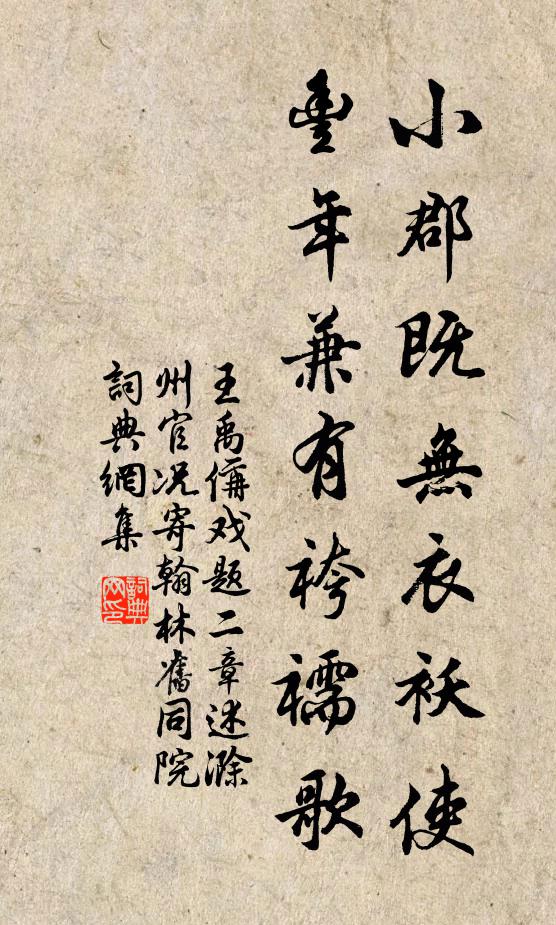 小郡既無衣袄使
豐年兼有袴襦歌
王禹偁戏题二章述滁
州官况寄翰林舊同院
詞典網集
詞典網印